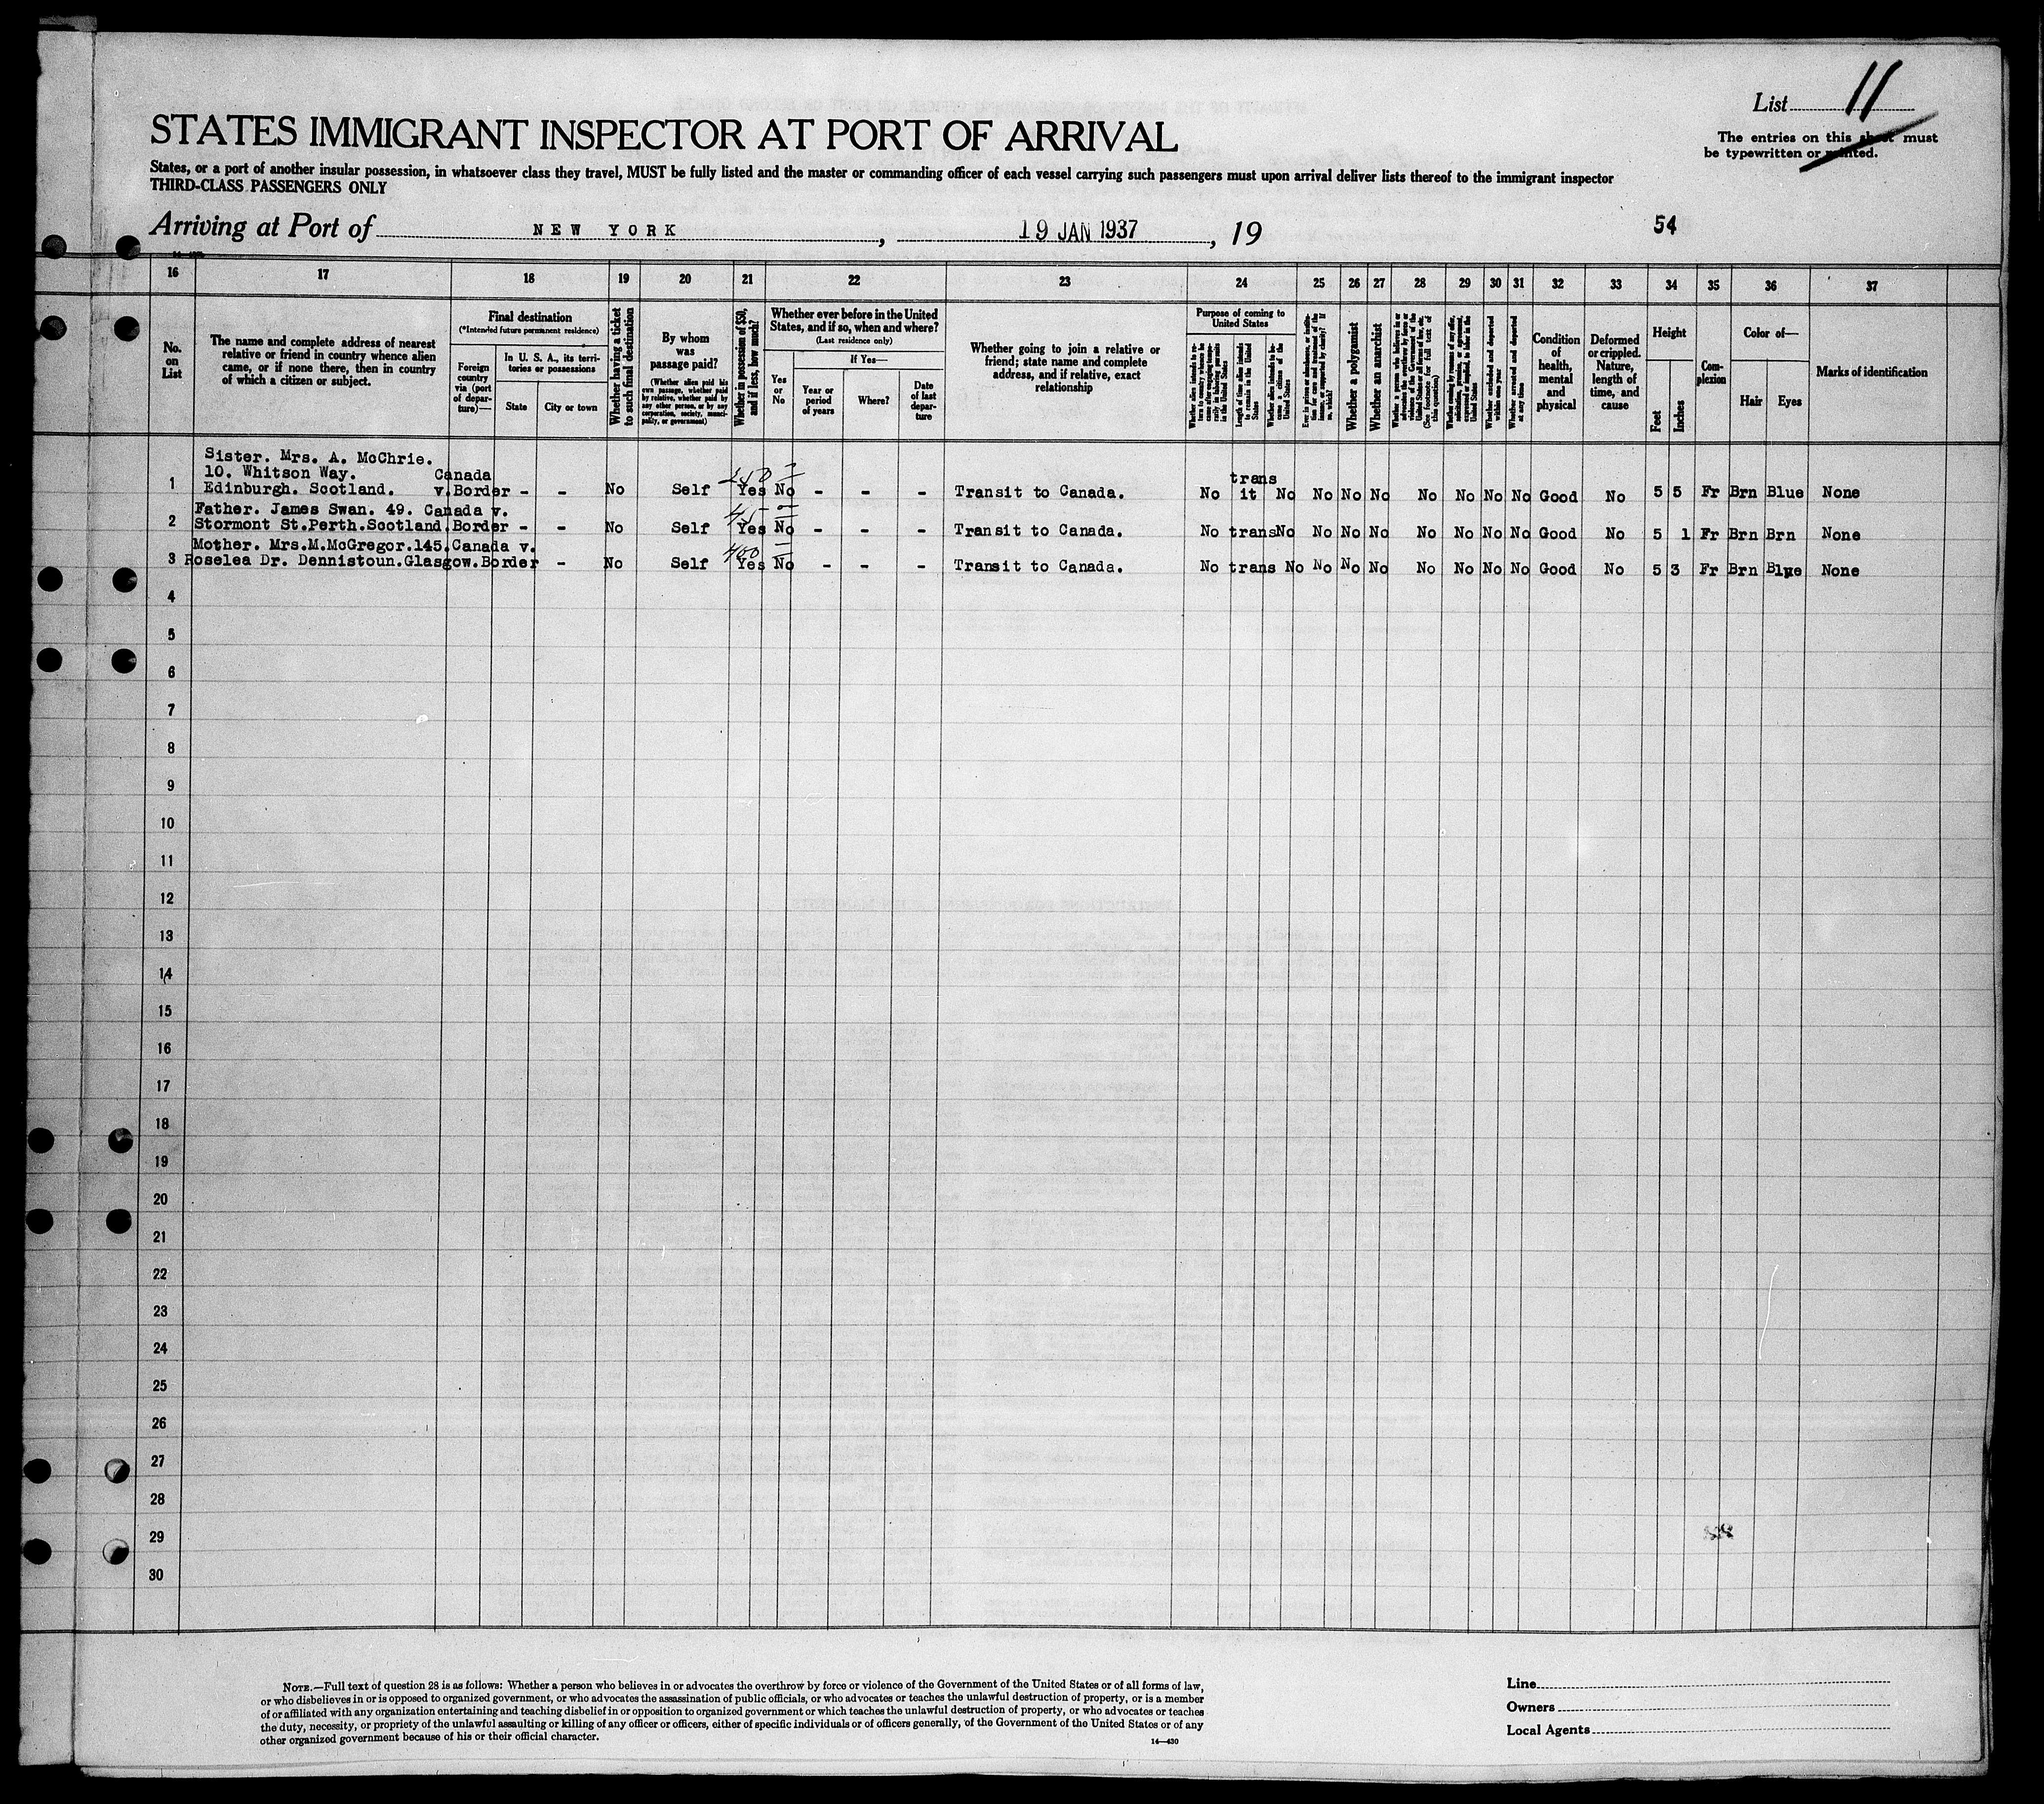 List 11
The entries on this sheet must
be typewritten or printed.
STATES IMMIGRANT INSPECTOR AT PORT OF ARRIVAL
States, or a port of another insular possession, in whatsoever class they travel, MUST be fully listed and the master or commanding officer of each vessel carrying such passengers must upon arrival deliver lists thereof to the immigrant inspector
THIRD-CLASS PASSENGERS ONLY
Arriving at Port of NEW YORK, 19 JAN 1937, 19
54
16 17 18 19 20 21 22 23 24 25 26 27 28 29 30 31 32 33 34 35 36 37
No. on List
The name and complete address of nearest
relative or friend in country whence alien
came, or if none there, then in country
of which a citizen or subject.
Final destination
(*Intended future permanent residence)
Foreign country via (port of departure)—
In U. S. A., its territories or possessions
State
City or town
Whether having a ticket to such final destination
By whom was passage paid?
(Whether alien paid his own passage, whether paid by relative, whether paid by any other person, or by any corporation, society, municipality, or government)
Whether in possession of $50, and if less, how much?
Whether ever before in the United
States, and if so, when and where?
(Last residence only)
Yes or No
If Yes—
Year or period of years
Where?
Date of last departure
Whether going to join a relative or
friend; state name and complete
address, and if relative, exact
relationship
Purpose of coming to United States
Whether alien intends to return to country whence he came after engaging temporarily in laboring pursuits in the United States
Length of time alien intends to remain in the United States
Whether alien intends to become a citizen of the United States
Ever in prison or almshouse, or institution for care and treatment of the insane, or supported by charity? If so, which?
Whether a polygamist
Whether an anarchist
Whether a person who believes in or advocates the overthrow by force or violence of the Government of the United States or all forms of law, etc. (See footnote for full text of this question)
Whether coming by reason of any offer, solicitation, promise, or agreement, expressed or implied, to labor in the United States
Whether excluded and deported within one year
Whether arrested and deported at any time
Condition of health, mental and physical
Deformed or crippled. Nature, length of time, and cause
Height
Feet
Inches
Complexion
Color of—
Hair
Eyes
Marks of identification
Sister. Mrs. A. McChrie.
10. Whitson Way. Canada 250 — trans
1 Edinburgh. Scotland. v.Border - - No Self Yes No - - - Transit to Canada. No it No No No No No No No No Good No 5 5 Fr Brn Blue None
Father. James Swan. 49. Canada v. 45 —
2 Stormont St.Perth.Scotland.Border - - No Self Yes No - - - Transit to Canada. No trans No No No No No No No No Good No 5 1 Fr Brn Brn None
Mother. Mrs.M.McGregor.145.Canada v. 400 —
3 Roselea Dr. Dennistoun.Glasgow.Border - No Self Yes No - - - Transit to Canada. No trans No No No No No No No No Good No 5 3 Fr Brn Blue None
4
5
6
7
8
9
10
11
12
13
14
15
16
17
18
19
20
21
22
23
24
25
26
27
28
29
30
NOTE.—Full text of question 28 is as follows: Whether a person who believes in or advocates the overthrow by force or violence of the Government of the United States or of all forms of law,
or who disbelieves in or is opposed to organized government, or who advocates the assassination of public officials, or who advocates or teaches the unlawful destruction of property, or is a member
of or affiliated with any organization entertaining and teaching disbelief in or opposition to organized government or which teaches the unlawful destruction of property, or who advocates or teaches
the duty, necessity, or propriety of the unlawful assaulting or killing of any officer or officers, either of specific individuals or of officers generally, of the Government of the United States or of any
other organized government because of his or their official character.
14—430
Line
Owners
Local Agents